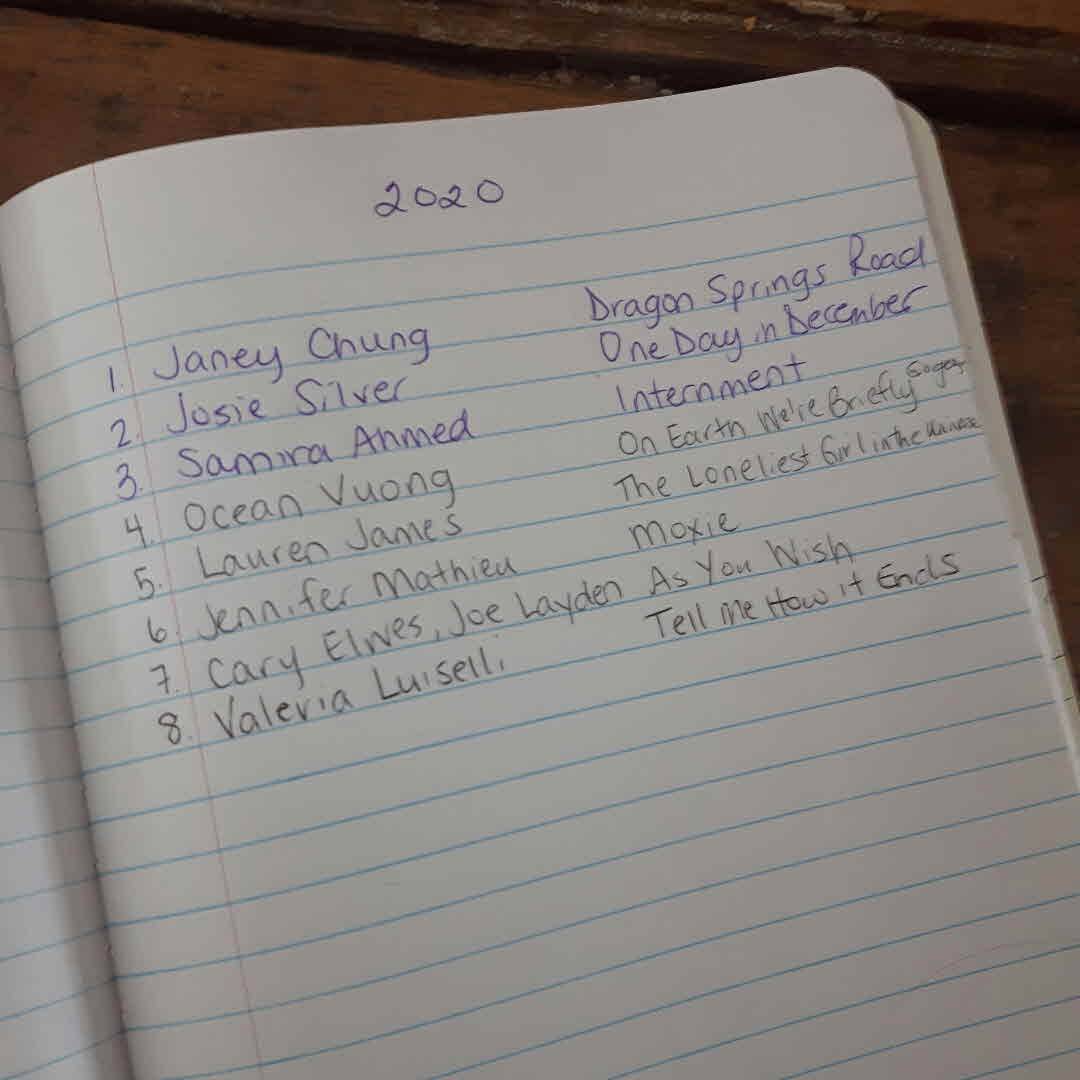 2020
1. Janey Chung Dragon Springs Road
2. Josie Silver One Day in December
3. Samira Ahmed Internment
4. Ocean Vuong On Earth We're Briefly Gogeo
5. Lauren James The Loneliest Girl in the Universe
6. Jennifer Mathieu Moxie
7. Cary Elwes, Joe Layden As You Wish
8. Valeria Luiselli Tell Me How it Ends